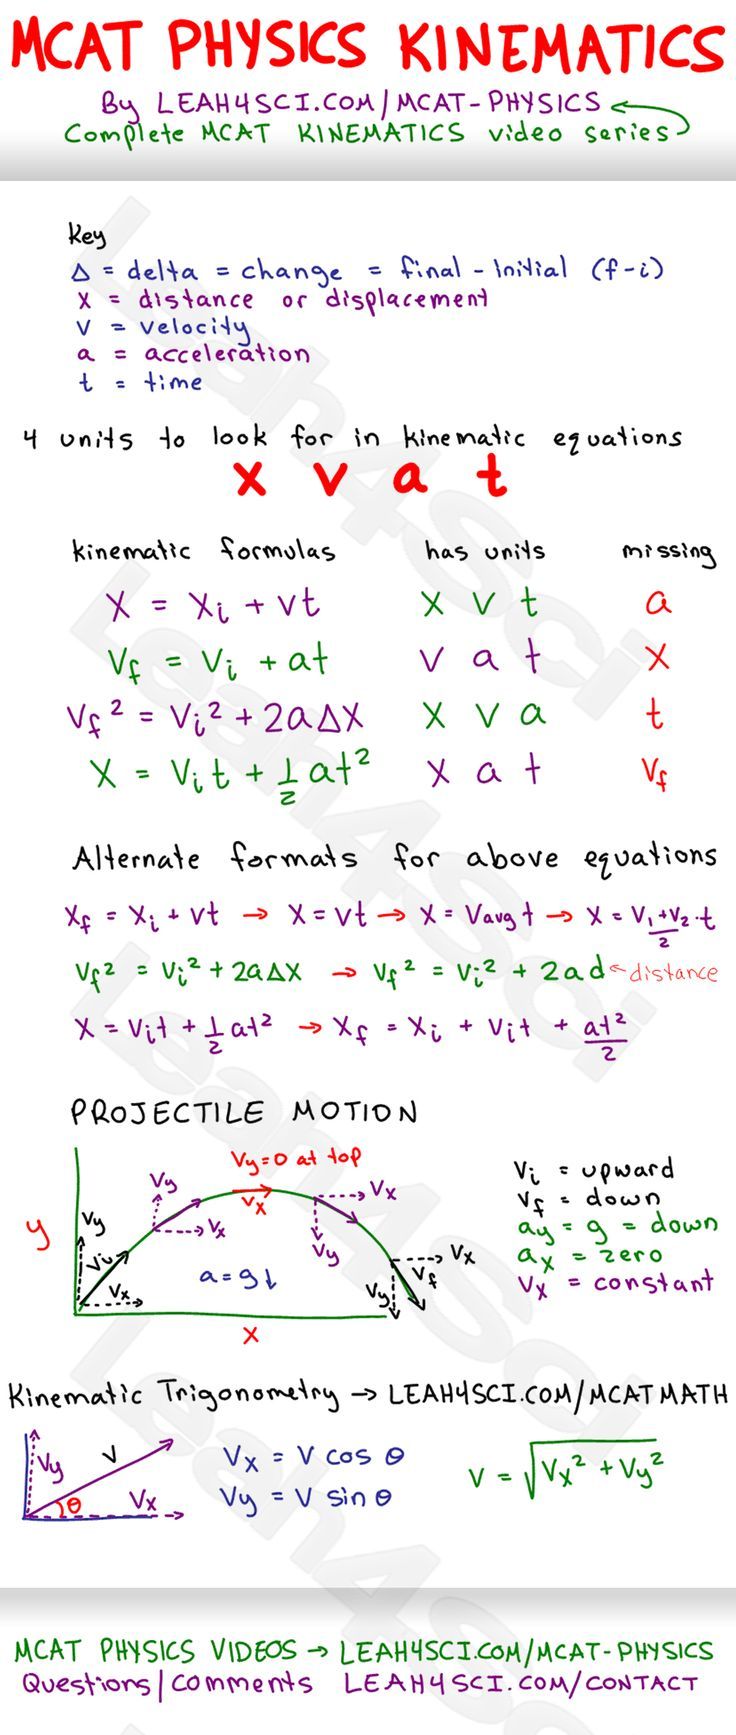 MCAT PHYSICS KINEMATICS
By LEAH4SCI.COM/MCAT-PHYSICS
Complete MCAT KINEMATICS video series
Key
Δ = delta = change = final - Initial (f-i)
x = distance or displacement
v = velocity
a = acceleration
t = time
4 units to look for in kinematic equations
x v a t
kinematic formulas has units missing
X = Xi + vt x v t a
Vf = Vi + at v a t x
Vf² = Vi² + 2aΔX x v a t
X = Vit + 1/2 at² x a t Vf
Alternate formats for above equations
Xf = Xi + vt → X = vt → X = Vavg t → X = V1+V2/2 · t
Vf² = Vi² + 2aΔX → Vf² = Vi² + 2ad ← distance
X = Vit + 1/2 at² → Xf = Xi + Vit + at²/2
PROJECTILE MOTION
Vy=0 at top
Vy
Vx
Vx
Vx
Vy
y
Vy
Vi
Vx
a = g↓
Vx
Vf
Vy
x
Vi = upward
Vf = down
ay = g = down
ax = zero
Vx = constant
Kinematic Trigonometry → LEAH4SCI.COM/MCATMATH
Vy
V
θ
Vx
Vx = V cos θ
Vy = V sin θ
V = √Vx² + Vy²
MCAT PHYSICS VIDEOS → LEAH4SCI.COM/MCAT-PHYSICS
Questions/Comments LEAH4SCI.COM/CONTACT
Leah4Sci
Leah4Sci
Leah4Sci
Leah4Sci
Leah4Sci